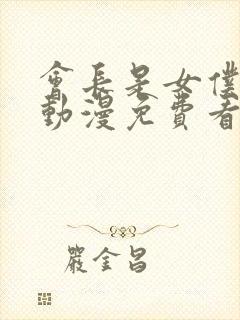 會長是女僕
動漫免費看
嚴金昌